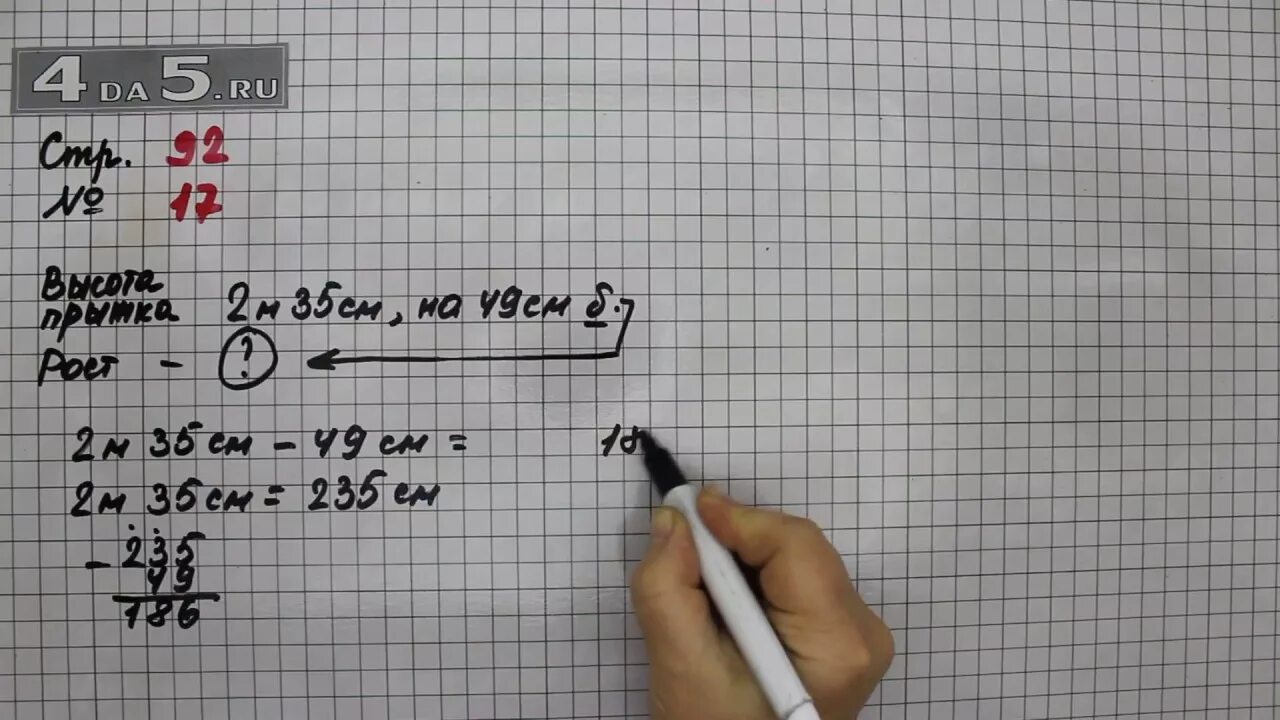 4DA5.RU
Стр. 92
№ 17
Высота
прыжка 2 м 35 см, на 49 см б.
Рост – ?
2 м 35 см – 49 см = 18
2 м 35 см = 235 см
– 235
49
186